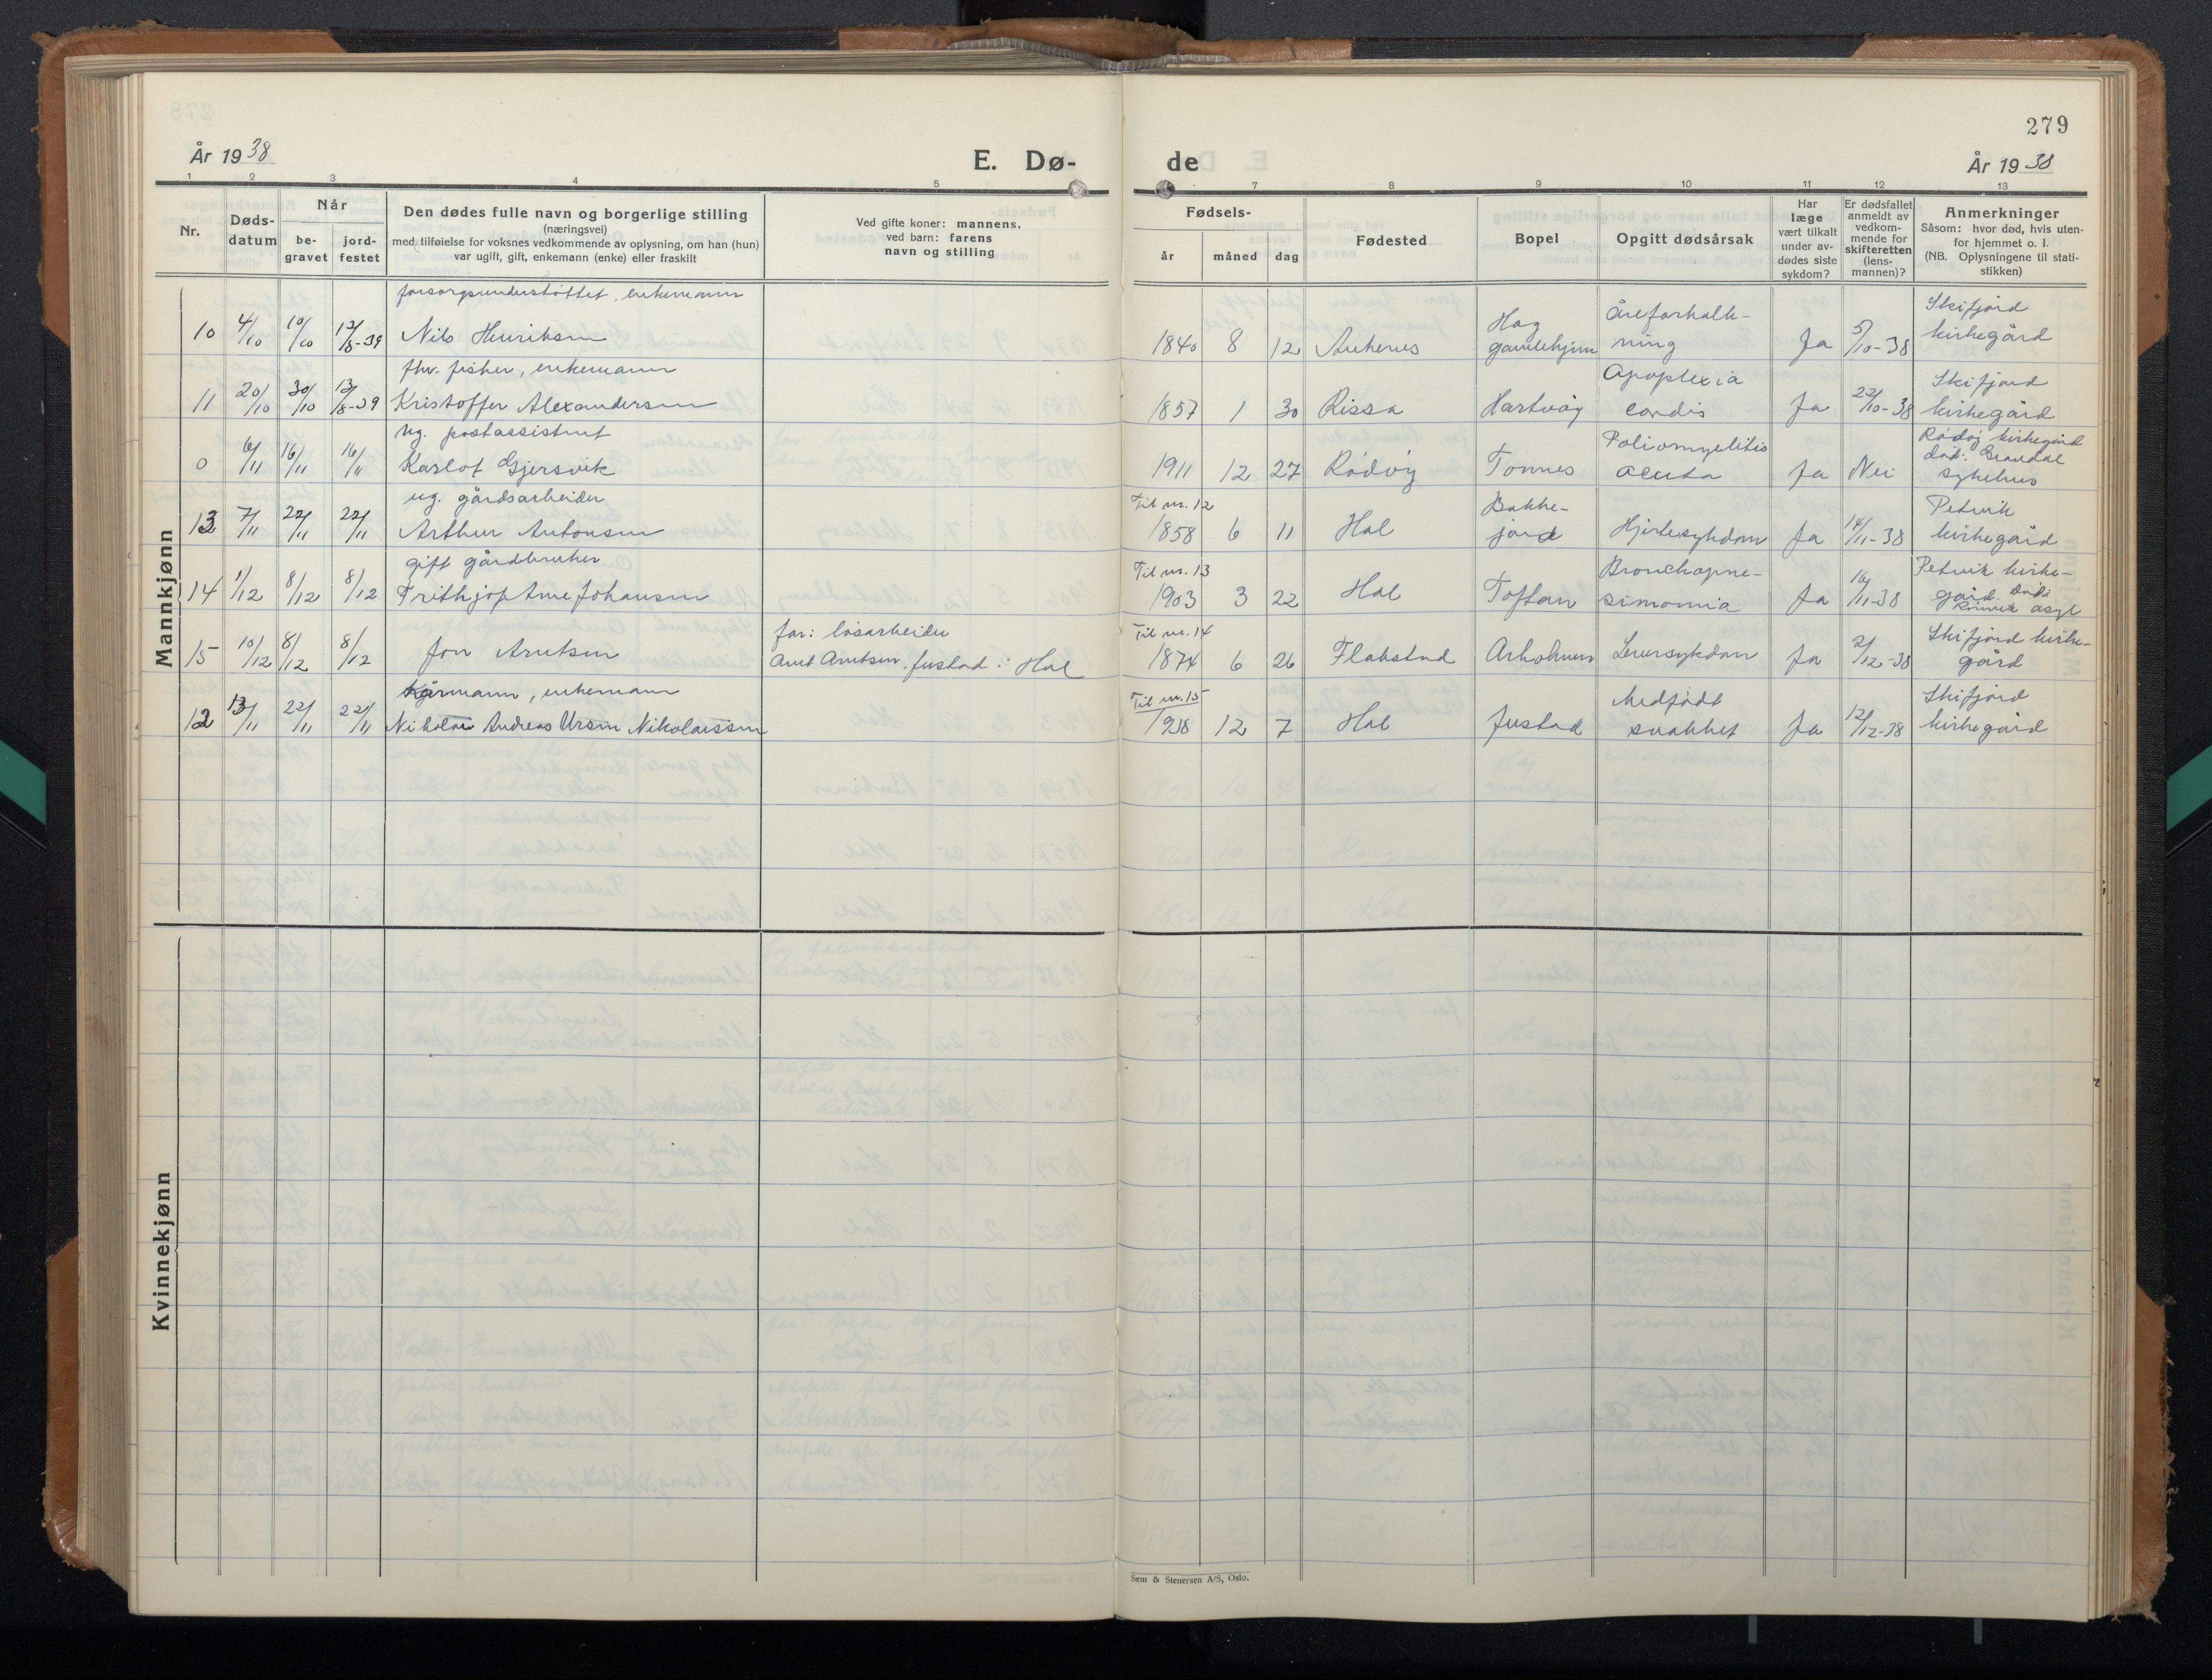 279
År 1938
E. Dø-
de
År 1938
1 2 3 4 5 7 8 9 10 11 12 13
Nr.
Døds-
datum
Når
be-
gravet
jord-
festet
Den dødes fulle navn og borgerlige stilling
(næringsvei)
med tilføielse for voksnes vedkommende av oplysning, om han (hun)
var ugift, gift, enkemann (enke) eller fraskilt
Ved gifte koner: mannens,
ved barn: farens
navn og stilling
Fødsels-
år måned dag
Fødested
Bopel
Opgitt dødsårsak
Har
læge
vært tilkalt
under av-
dødes siste
sykdom?
Er dødsfallet
anmeldt av
vedkom-
mende for
skifteretten
(lens-
mannen)?
Anmerkninger
Såsom: hvor død, hvis uten-
for hjemmet o. l.
(NB. Oplysningene til stati-
stikken)
Mannkjønn
forsorgsunderstøttet, enkemann
10 4/10 10/10 12/8-39 Nils Henriksen
1840 8 12
Hag
gamlehjem
Åreforkalk-
ning
Ja 5/10-38
Skifjord
kirkegård
fhv. fisker, enkemann
11 20/10 30/10 13/8-39 Kristoffer Alexandersen
1857 1 30 Rissa Hartvåg
Apoplexia
cordis
Ja 22/10-38
Skifjord
kirkegård
ug. postassistent
0 6/11 16/11 16/11 Karlot Gjersvik
1911 12 27 Rødøy Tonnes
Poliomyelitis
acuta
Ja Nei
Rødøy kirkegård
død: Gravdal
sykehus
ug. gårdsarbeider
13 7/11 22/11 22/11 Arthur Antonsen
Til nr. 12
1858 6 11 Hol
Bakke-
jord
Hjertesykdom Ja 14/11-38
Petvik
kirkegård
gift gårdbruker
14 1/12 8/12 8/12 Frithjof Arne Johansen
Til nr. 13
1903 3 22 Hol Toftan
Bronchopne-
simonnia
Ja 16/11-38
Petvik kirke-
gård. Død:
Rønvik asyl
15 10/12 8/12 8/12 Jon Arntsen
far: løsarbeider
Arnt Arntsen, Justad i Hol
Til nr. 14
1874 6 26 Flakstad Arholmen Leversykdom Ja 2/12-38
Skifjord kirke-
gård
Kårmann, enkemann
12 13/11 22/11 22/11 Nikolai Andreas Ursin Nikolaissen
Til nr. 15
1938 12 7 Hol Justad
Medfødt
svakhet
Ja 12/12-38
Skifjord
kirkegård
Kvinnekjønn
Sem & Stenersen A/S, Oslo.